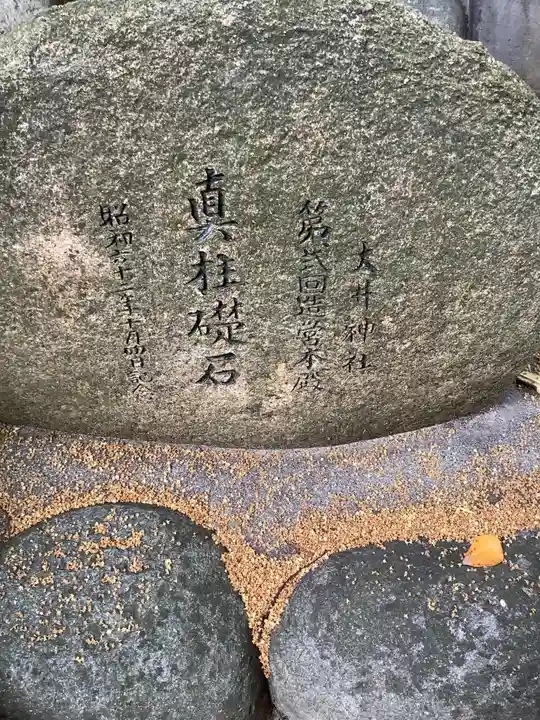 大井神社
第弐回造営本殿
真柱礎石
昭和二十二年十月四日記念